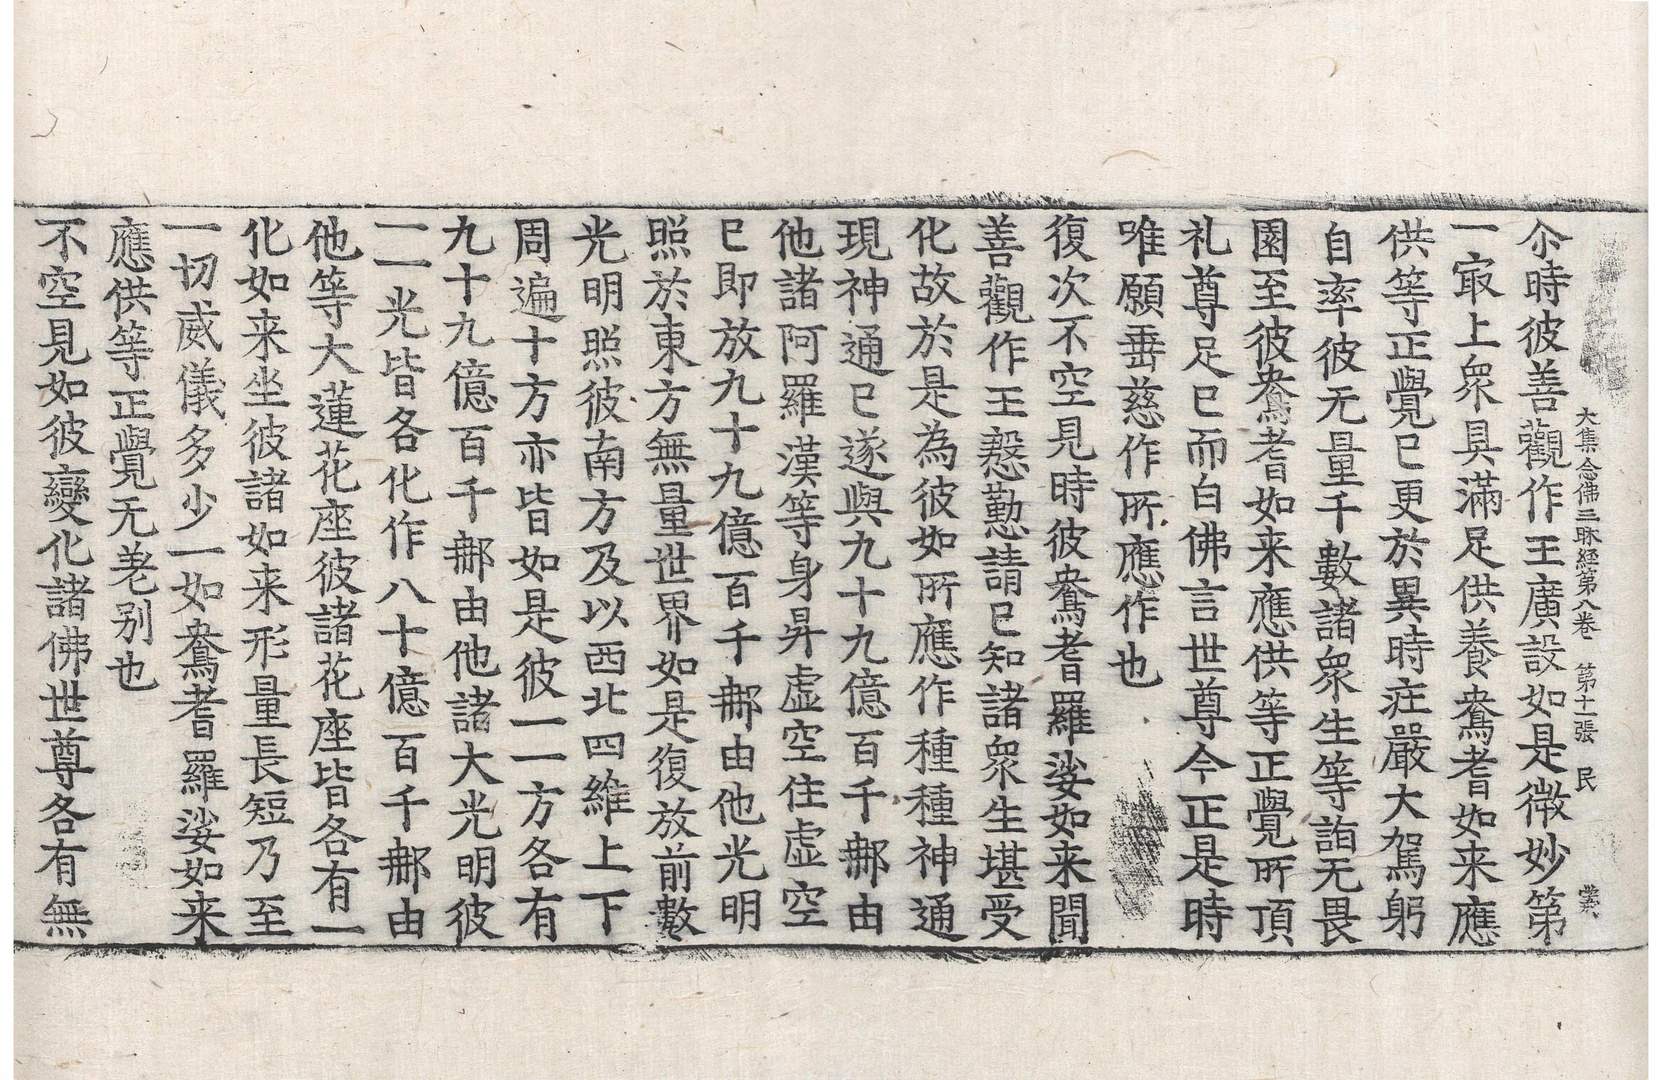 大集念佛三昧經第八卷 第十一張 民
尒時彼善觀作王廣設如是微妙第
一㝡上衆具滿足供養鴦耆如来應
供等正覺已更於異時疰嚴大駕躬
自率彼无量千數諸衆生等詣无畏
園至彼鴦耆如来應供等正覺所頂
礼尊足已而白佛言世尊今正是時
唯願垂慈作所應作也
復次不空見時彼鴦耆羅娑如来聞
善觀作王慇懃請已知諸衆生堪受
化故於是為彼如所應作種種神通
現神通已遂與九十九億百千郍由
他諸阿羅漢等身昇虛空住虛空
已即放九十九億百千郍由他光明
照於東方無量世界如是復放前數
光明照彼南方及以西北四維上下
周遍十方亦皆如是彼一一方各有
九十九億百千郍由他諸大光明彼
一一光皆各化作八十億百千郍由
他等大蓮花座彼諸花座皆各有一
化如来坐彼諸如来形量長短乃至
一切威儀多少一如鴦耆羅娑如来
應供等正覺无差别也
不空見如彼變化諸佛世尊各有無